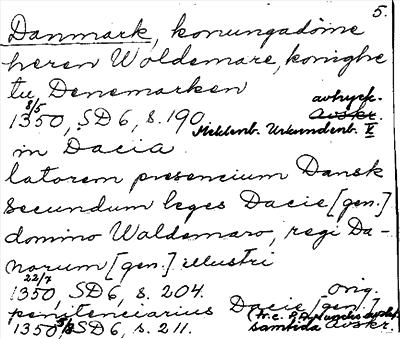 5.
Danmark, konungadöme
heren Woldemare, konighe
tu Denemarken
8/5 avtryck.
1350, SD 6, s. 190 Avskr.
Meklenb. Urkundenb. X
in Dacia
latorem presencium Dansk
secundum leges Dacie [gen.]
domino Waldemaro, regi Da-
norum [gen.] illustri
22/7
1350, SD 6, s. 204. orig.
penitenciarius Dacie [gen.]
1350 SD 6, s. 211. samtida Avskr.